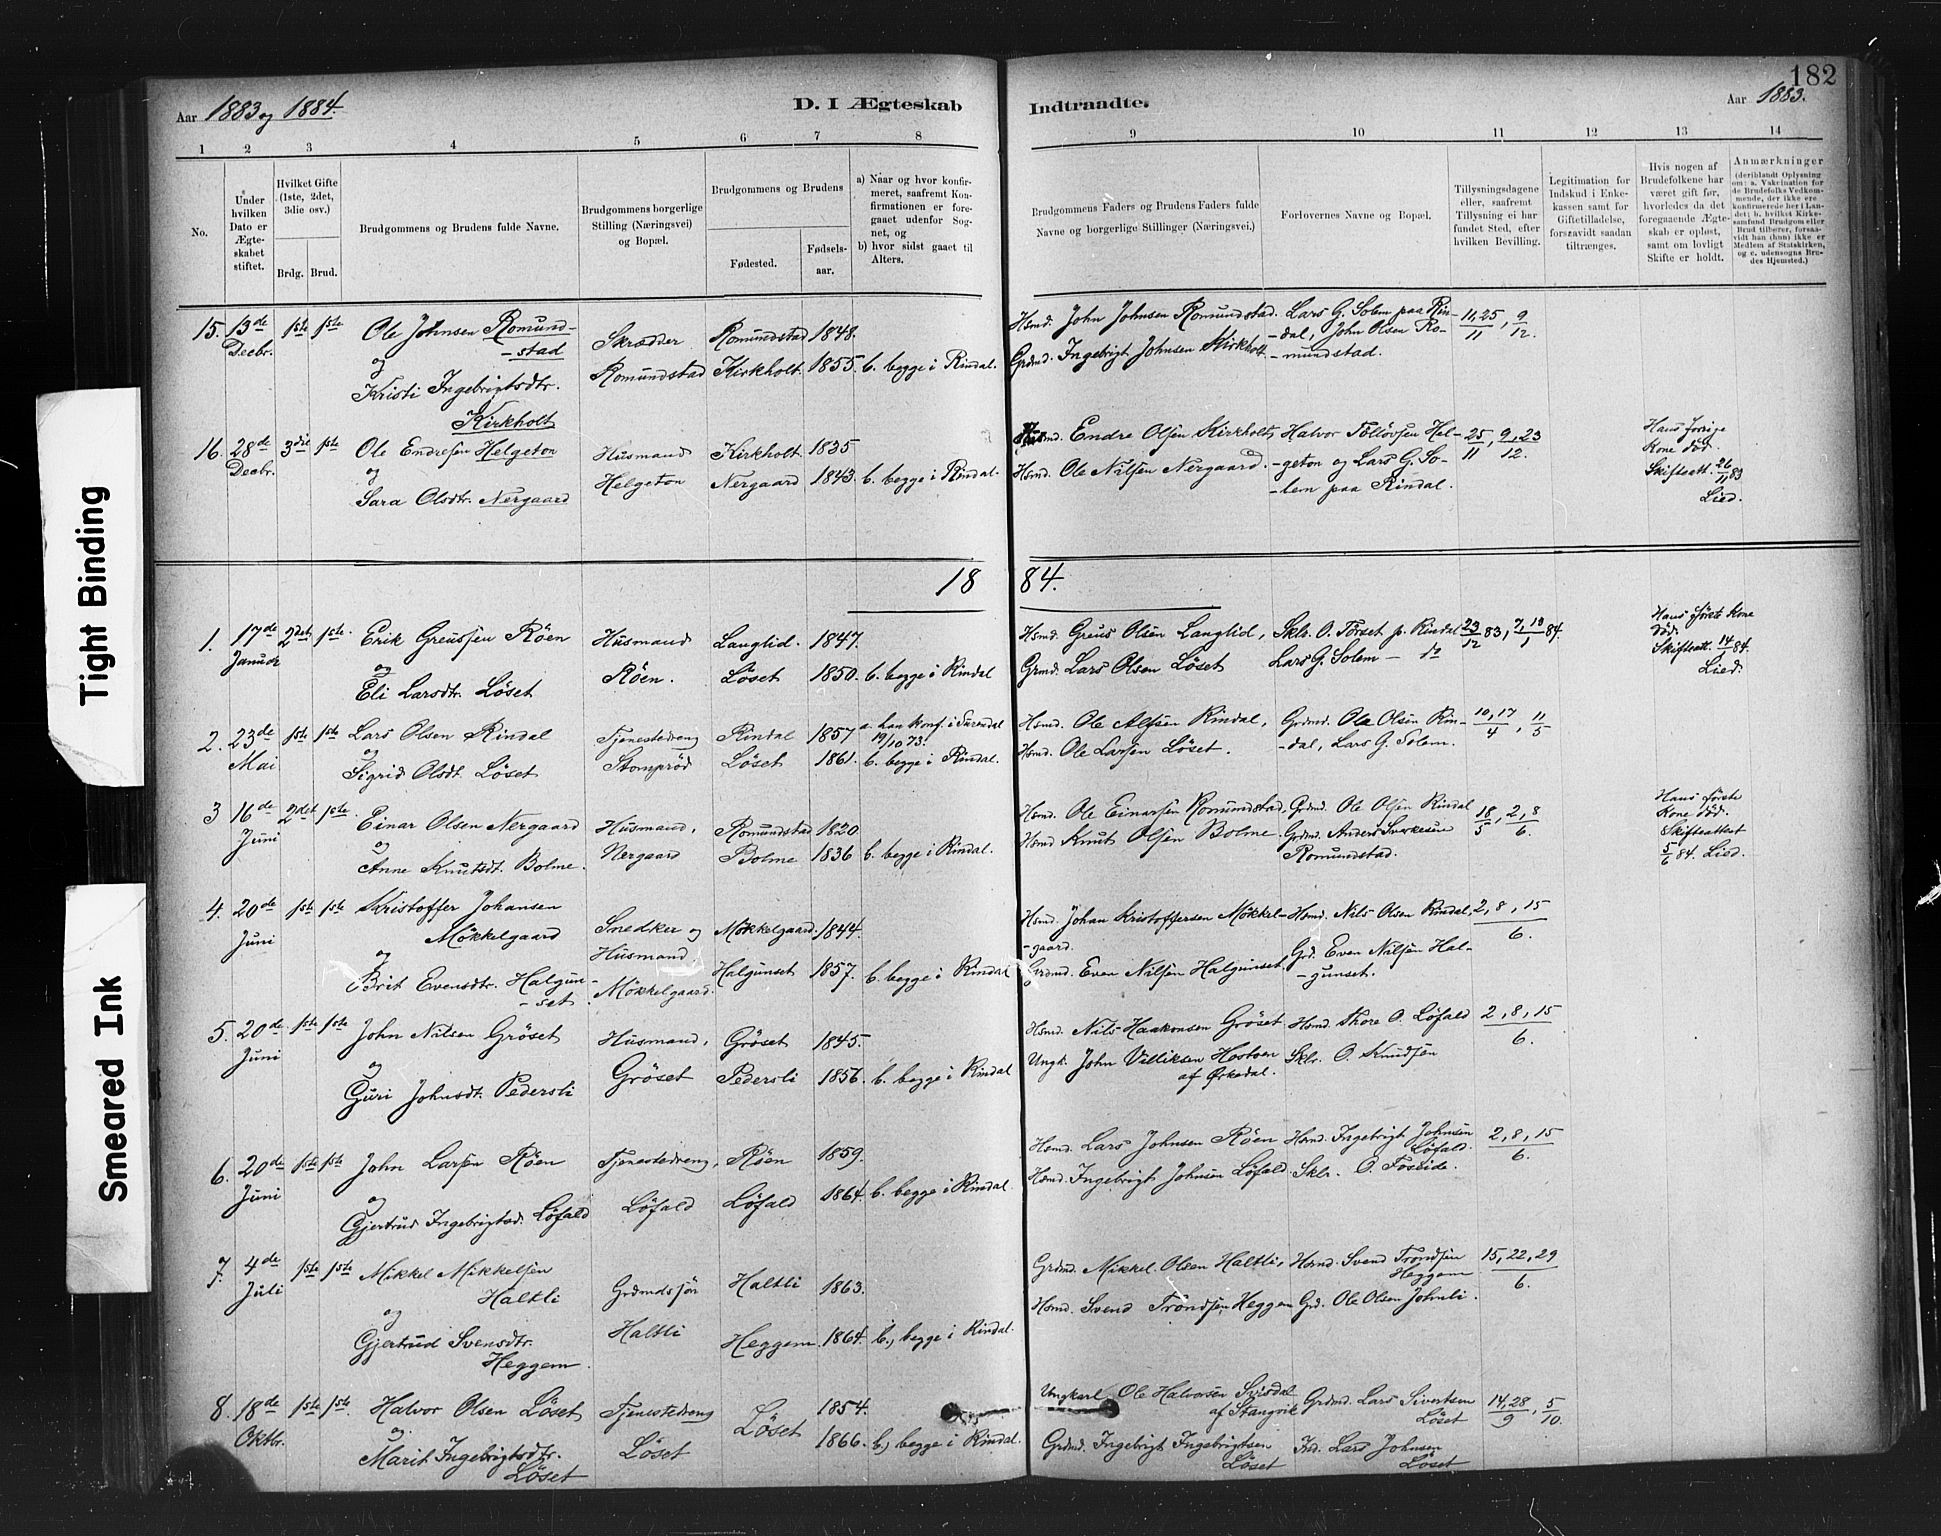 182
Aar 1883 og 1884.
D. I Ægteskab
Indtraadte.
Aar 1883.
1 2 3 4 5 6 7 8 9 10 11 12 13 14
No.
Under hvilken Dato er Ægteskabet stiftet.
Hvilket Gifte (1ste, 2det, 3die osv.)
Brdg. Brud.
Brudgommens og Brudens fulde Navne.
Brudgommens borgerlige Stilling (Næringsvei) og Bopæl.
Brudgommens og Brudens
Fødested.
Fødselsaar.
a) Naar og hvor konfirmeret, saafremt Konfirmationen er foregaaet udenfor Sognet, og
b) hvor sidst gaaet til Alters.
Brudgommens Faders og Brudens Faders fulde Navne og borgerlige Stillinger (Næringsvei.)
Forlovernes Navne og Bopæl.
Tillysningsdagene eller, saafremt Tillysning ei har fundet Sted, efter hvilken Bevilling.
Legitimation for Indskud i Enkekassen samt for Giftetilladelse, forsaavidt saadan tiltrænges.
Hvis nogen af Brudefolkene har været gift før, hvorledes da det foregaaende Ægteskab er opløst, samt om lovligt Skifte er holdt.
Anmærkninger
(deriblandt Oplysning om: a. Vakcination for de Brudefolks Vedkommende, der ikke ere konfirmerede her i Landet; b. hvilket Kirkesamfund Brudgom eller Brud tilhører, forsaavidt han (hun) ikke er Medlem af Statskirken, og c. udensogns Brudes Hjemsted.)
15. 13de Decbr. 1ste 1ste Ole Johnsen Romundstad
og
Kristi Ingebrigtsdtr. Kirkholt
Skrædder Romundstad
Romundstad 1848.
Kirkholt. 1855. b. begge i Rindal.
Hsmd. John Johnsen Romundstad.
Grdmd. Ingebrigt Johnsen Kirkholt
Lars G. Solem paa Rindal, John Olsen Romundstad.
11, 25/11, 9/12.
16. 28de Decbr. 3die 1ste Ole Endresen Helgeton
og
Sara Olsdtr. Nergaard
Husmand Helgeton
Kirkholt 1835
Nergaard 1843. b. begge i Rindal.
Hsmd. Endre Olsen Kirkholt,
Hsmd. Ole Nilsen Nergaard.
Halvor Tolløvsen Helgeton og Lars G. Solem paa Rindal.
25/11, 9, 23/12.
Hans forrige Kone død. Skifteatt. 26/11 83 Lied.
1884.
1. 17de Januar 2det 1ste. Erik Greussen Röen
og
Eli Larsdtr. Löset
Husmand Röen.
Langlid. 1847.
Löset 1850. b. begge i Rindal
Hsmd. Greus Olsen Langlid,
Grmd. Lars Olsen Löset
Sklr. O. Törset p. Rindal
Lars G. Solem — do
23/12 83, 7, 19/1 84.
Hans første Kone død. Skifteatt. 14/1 84. Lied.
2. 23de Mai 1ste 1ste Lars Olsen Rindal
og
Sigrid Olsdt. Löset
Tjenestedreng Stomprød
Rindal 1857 a. han konf. i Surendal 19/10 73.
Löset 1861. b. begge i Rindal.
Hsmd. Ole Alfsen Rindal,
Hsmd. Ole Larsen Löset.
Grdmd. Ole Olsen Rindal, Lars G. Solem.
10, 17/4, 11/5
3 16de Juni 2det 1ste. Einar Olsen Nergaard
og
Anne Knutsdt. Bolme.
Husmand, Nergaard
Romundstad 1820
Bolme 1836 b. begge i Rindal.
Hsmd. Ole Einarsen Romundstad,
Hsmd Knut Olsen Bolme.
Grdmd. Ole Olsen Rindal
Grdmd. Anders Sverkesen Romundstad.
18/5, 2, 8/6.
Hans første Kone död. Skifteattest 5/6 84. Lied.
4. 20de Juni 1ste 1ste Kristoffer Johansen Mökkelgaard
og
Brit Evensdtr. Halgunset
Snedker og Husmand Mökkelgaard.
Mökkelgaard. 1844.
Halgunset 1857. b. begge i Rindal
Hsmd. Johan Kristoffersen Mökkelgaard.
Grdmd. Even Nilsen Halgunset
Hsmd. Nils Olsen Rindal,
Grd. Even Nilsen Halgunset.
2, 8, 15/6.
5. 20de Juni 1ste 1ste John Nilsen Gröset
og
Guri Johnsdt. Pedersli
Husmand, Gröset
Gröset 1845.
Pedersli 1856. b. begge i Rindal
Hsmd. Nils Haakonsen Gröset
Ungk. John Villiksen Hostoen af Ørkedal.
Hsmd. Thore O. Löfald
Sklr. O. Knudsen
2, 8, 15/6.
6. 20de Juni 1ste 1ste John Larsen Röen
og
Gjertrud Ingebrigtsd. Löfald
Tjenestedreng, Löfald
Röen 1859.
Löfald 1864. b. begge i Rindal.
Hsmd. Lars Johnsen Röen
Hsmd. Ingebrigt Johnsen Löfald
Hsmd. Ingebrigt Johnsen Löfald.
Sklr. O. Foseide.
2, 8, 15/6.
7. 4de Juli 1ste 1ste Mikkel Mikkelsen Haltli
og
Gjertrud Svensdtr. Heggem.
Grdmdssön Haltli
Haltli 1863.
Heggem. 1864. b., begge i Rindal.
Grdmd. Mikkel Olsen Haltli,
Hsmd. Svend Tröndsen Heggem
Hsmd. Svend Tröndsen Heggem
Grd. Ole Olsen Johnli.
15, 22, 29/6.
8. 18de Oktbr. 1ste 1ste. Halvor Olsen Löset
og
Marit Ingebrigtsdtr. Löset
Tjenestedreng Löset
Löset 1854.
1866. b., begge i Rindal.
Ungkarl Ole Halvorsen Svisdal af Stangvik
Grdmd. Ingebrigt Ingebrigtsen Löset
Grdmd. Lars Sivertsen Löset
Ind. Lars Johnsen Löset
14, 28/9, 5/10.
Tight Binding
Smeared Ink